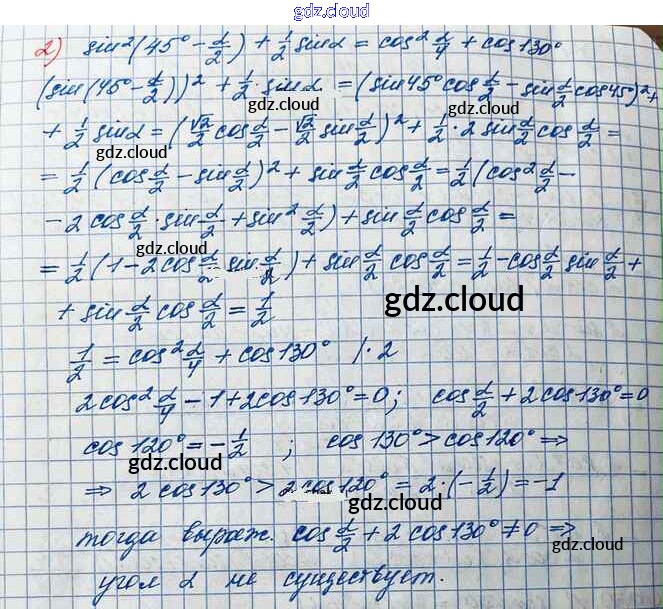 gdz.cloud
2) sin²(45° - α/2) + 1/2 sinα = cos² α/4 + cos130°
(sin(45° - α/2))² + 1/2 · sinα = (sin45° cos α/2 - sin α/2 cos45°)² +
gdz.cloud gdz.cloud
+ 1/2 sinα = (√2/2 cos α/2 - √2/2 sin α/2)² + 1/2 · 2 sin α/2 cos α/2 =
gdz.cloud
= 1/2 (cos α/2 - sin α/2)² + sin α/2 cos α/2 = 1/2 (cos² α/2 -
gdz.cloud
- 2 cos α/2 · sin α/2 + sin² α/2) + sin α/2 cos α/2 =
gdz.cloud
= 1/2 (1 - 2 cos α/2 sin α/2) + sin α/2 cos α/2 = 1/2 - cos α/2 sin α/2 +
+ sin α/2 cos α/2 = 1/2
gdz.cloud
1/2 = cos² α/4 + cos130° / · 2
2 cos² α/4 - 1 + 2 cos130° = 0; cos α/2 + 2 cos130° = 0
gdz.cloud
cos120° = - 1/2 ; cos130° > cos120° ⇒
gdz.cloud
⇒ 2 cos130° > 2 cos120° = 2 · (- 1/2) = -1
gdz.cloud
тогда выраж. cos α/2 + 2 cos130° ≠ 0 ⇒
gdz.cloud
угол α не существует.